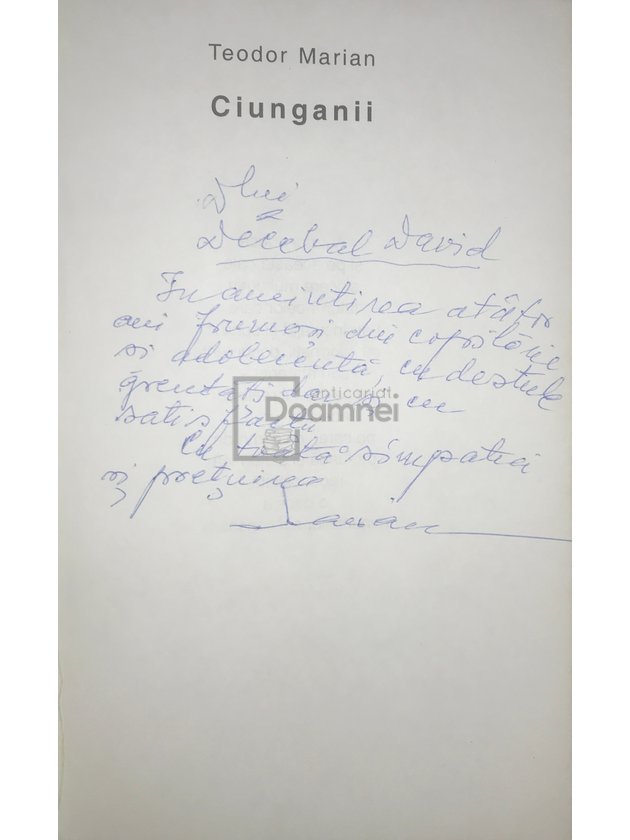 Teodor Marian
Ciunganii
Dlui
Decebal David
In amintirea atâtor
ani frumosi din copilărie
si adolecentă, cu destule
greutati dar si cu
satisfactii
Cu toată simpatia
si prețuirea
Marian
anticariat
Doamnei